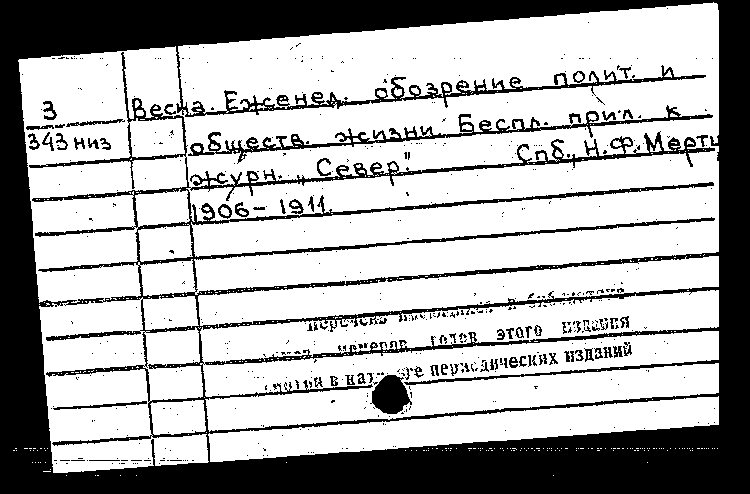 3 Весна. Еженед. обозрение полит. и
343 низ обществ. жизни. Беспл. прил. к
журн. „Север". Спб., Н.Ф. Мертц
1906 – 1911.
Перечень имеющихся в библиотеке
номеров годов этого издания
в периодических изданий